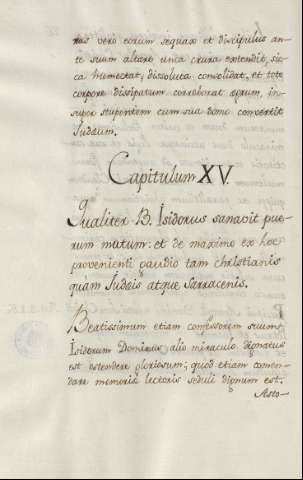 nas vero eorum sequax et discipulus an-
te suum altare una crura extendit, sic-
ca humectat, dissoluta consolidat, et toto
corpore dissipatum corroborat ægrum, in-
super stupentem cum sua domo convertit
Judæum.
Capitulum XV.
Qualiter B. Isidorus sanavit pue-
rum mutum: et de maximo ex hoc
provenienti gaudio tam christianis
quàm Judæis atque Sarracenis.
Beatissimum etiam confessorem suum
Isidorum Dominus alio miraculo dignatus
est ostendere gloriosum; quod etiam comen-
dare memoriæ lectoris seduli dignum est.